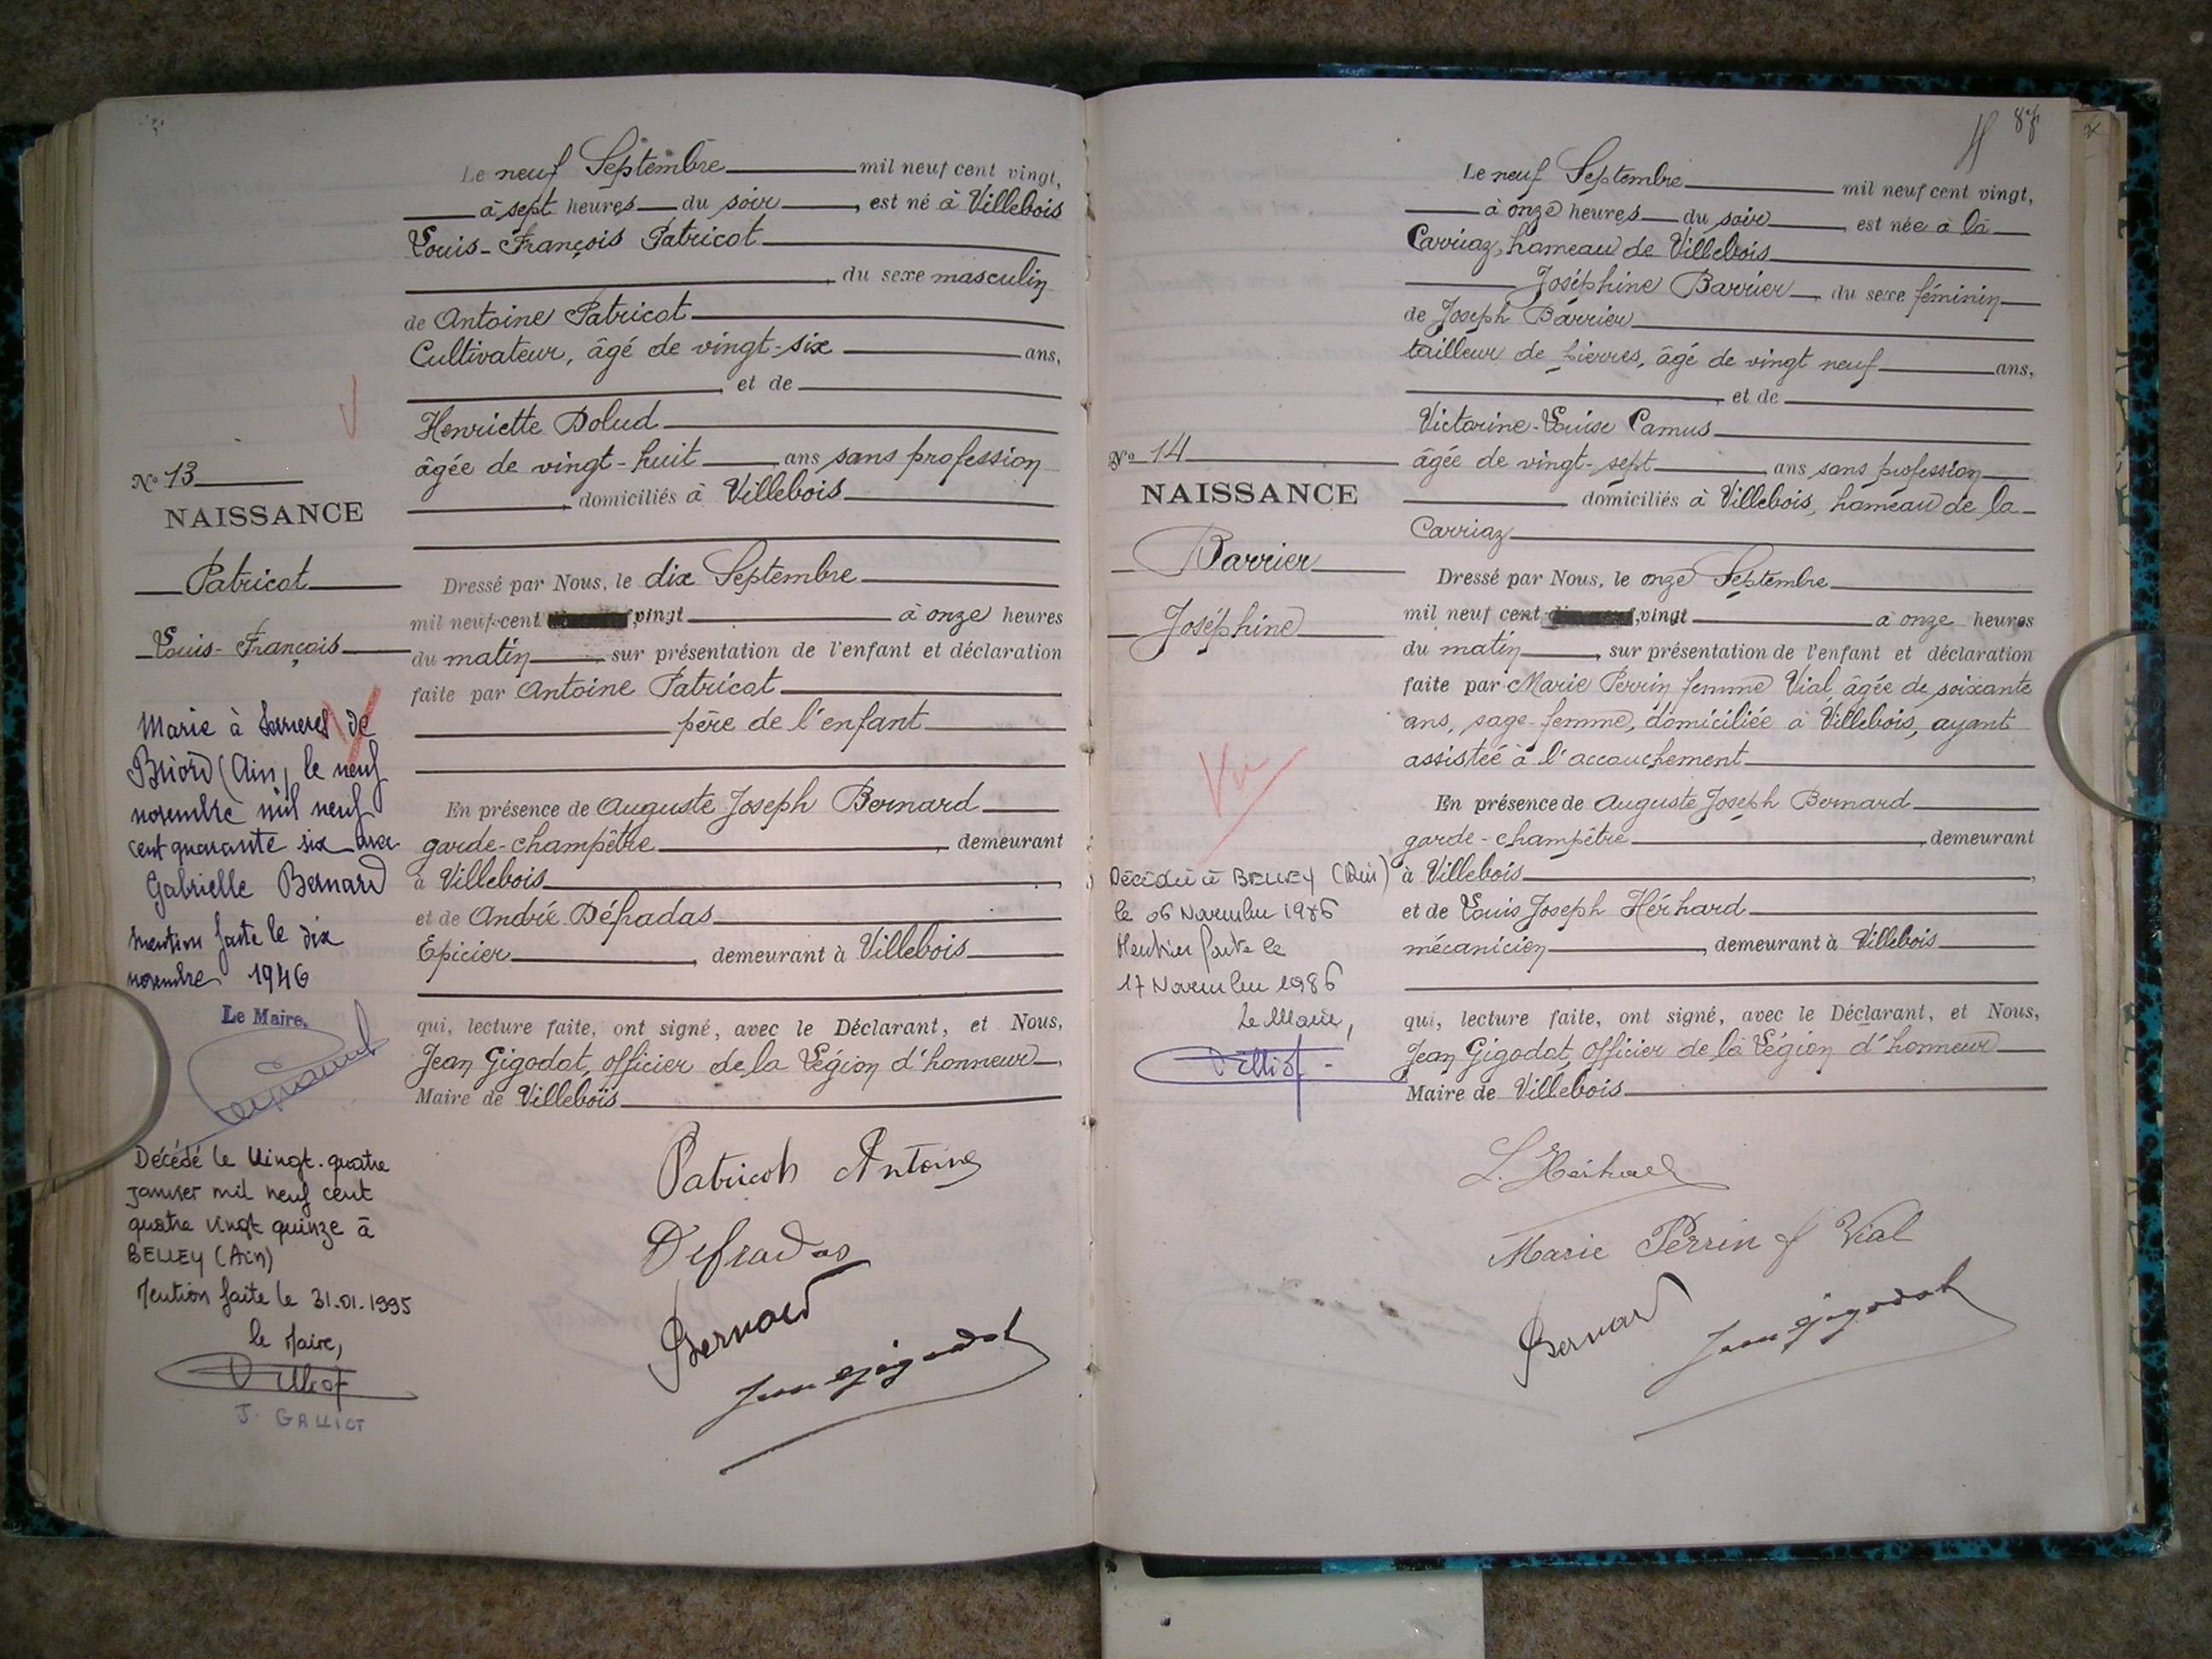 Le neuf Septembre mil neuf cent vingt,
à sept heures du soir, est né à Villebois
Louis-François Patricot
, du sexe masculin
de Antoine Patricot
Cultivateur, âgé de vingt-six ans,
, et de
Henriette Dolud
âgée de vingt-huit ans sans profession
, domiciliés à Villebois
Nº 13
NAISSANCE
Patricot
Louis-François
Dressé par Nous, le dix Septembre
mil neuf cent vingt à onze heures
du matin, sur présentation de l'enfant et déclaration
faite par Antoine Patricot
père de l'enfant
En présence de Auguste Joseph Bernard
garde-champêtre, demeurant
à Villebois,
et de André Défradas
Epicier, demeurant à Villebois
qui, lecture faite, ont signé, avec le Déclarant, et Nous,
Jean Gigodot, officier de la Légion d'honneur
Maire de Villebois
Marié à Serrières de
Briord (Ain) le neuf
novembre mil neuf
cent quarante six avec
Gabrielle Bernard
Mention faite le dix
novembre 1946
Le Maire,
Décédé le Vingt.quatre
janvier mil neuf cent
quatre vingt quinze à
BELLEY (Ain)
Mention faite le 31.01.1995
le Maire,
J. GALLIOT
Patricot Antoine
Defradas
Bernard
Jean Gigodot
87
Le neuf Septembre mil neuf cent vingt,
à onze heures du soir, est née à la
Carriaz, hameau de Villebois
Joséphine Barrier, du sexe féminin
de Joseph Barrier
tailleur de pierres, âgé de vingt neuf ans,
, et de
Victorine-Louise Camus
âgée de vingt-sept ans sans profession
, domiciliés à Villebois, hameau de la
Carriaz
Nº 14
NAISSANCE
Barrier
Joséphine
Dressé par Nous, le onze Septembre
mil neuf cent vingt à onze heures
du matin, sur présentation de l'enfant et déclaration
faite par Marie Perrin femme Vial, âgée de soixante
ans, sage-femme, domiciliée à Villebois, ayant
assistée à l'accouchement
En présence de Auguste Joseph Bernard
garde-champêtre, demeurant
à Villebois,
et de Louis Joseph Hérhard
mécanicien, demeurant à Villebois
qui, lecture faite, ont signé, avec le Déclarant, et Nous,
Jean Gigodot, officier de la Légion d'honneur
Maire de Villebois
Vu
Décédée à BELLEY (Ain)
le 06 Novembre 1986
Mention faite le
17 Novembre 1986
Le Maire,
Marie Perrin f Vial
Bernard
Jean Gigodot